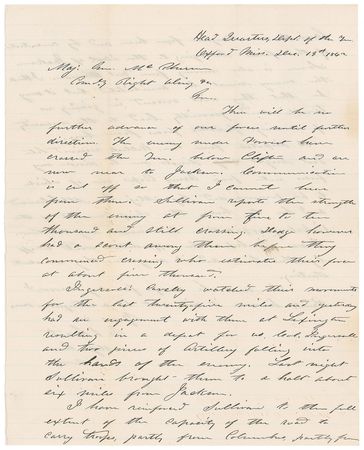 Head Quarters, Dept. of the Ten.
Oxford Miss. Dec. 19th 1862
Maj. Gen. McPherson
Comdg Right Wing &c
Gen.
There will be no
further advance of our forces until further
direction. The enemy under Forrest have
crossed the Ten. below Clifton and are
now near to Jackson. Communication
is cut off so that I cannot hear
from there. Sullivan reports the strength
of the enemy at from five to ten
thousand and still crossing. Dodge however
had a scout among them before they
commenced crossing who estimates their force
at about five thousand.
Ingersoll's Cavalry watched their movements
for the last twenty-five miles and yesterday
had an engagement with them at Lexington
resulting in a defeat for us, lost Ingersoll
and two pieces of Artillery falling into
the hands of the enemy. Last night
Sullivan brought them to a halt about
six miles from Jackson.
I have reinforced Sullivan to the full
extent of the capacity of the road to
carry troops, partly from Columbus, partly from